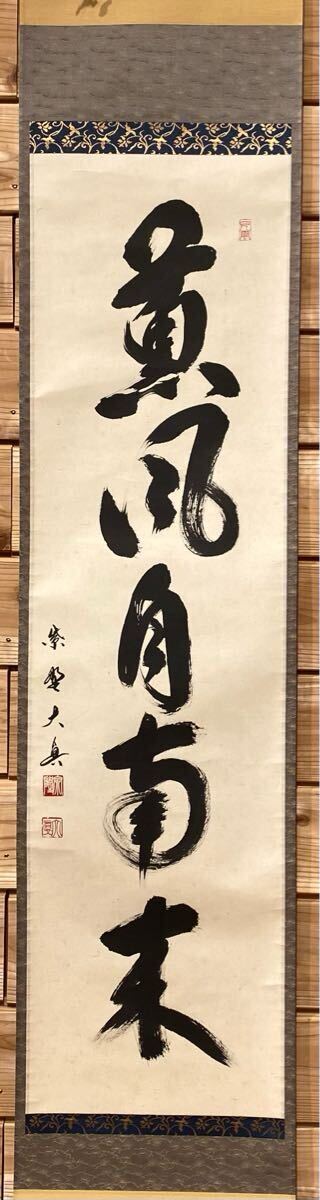 薫風自南来
紫野大真